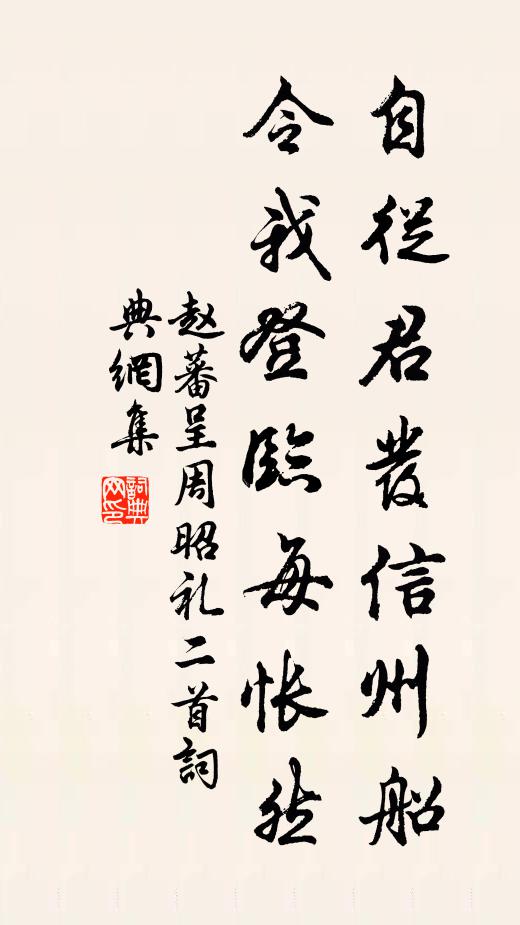 自從君發信州船
令我登臨每悵然
赵蕃呈周昭礼二首詞
典網集
詞典
网印